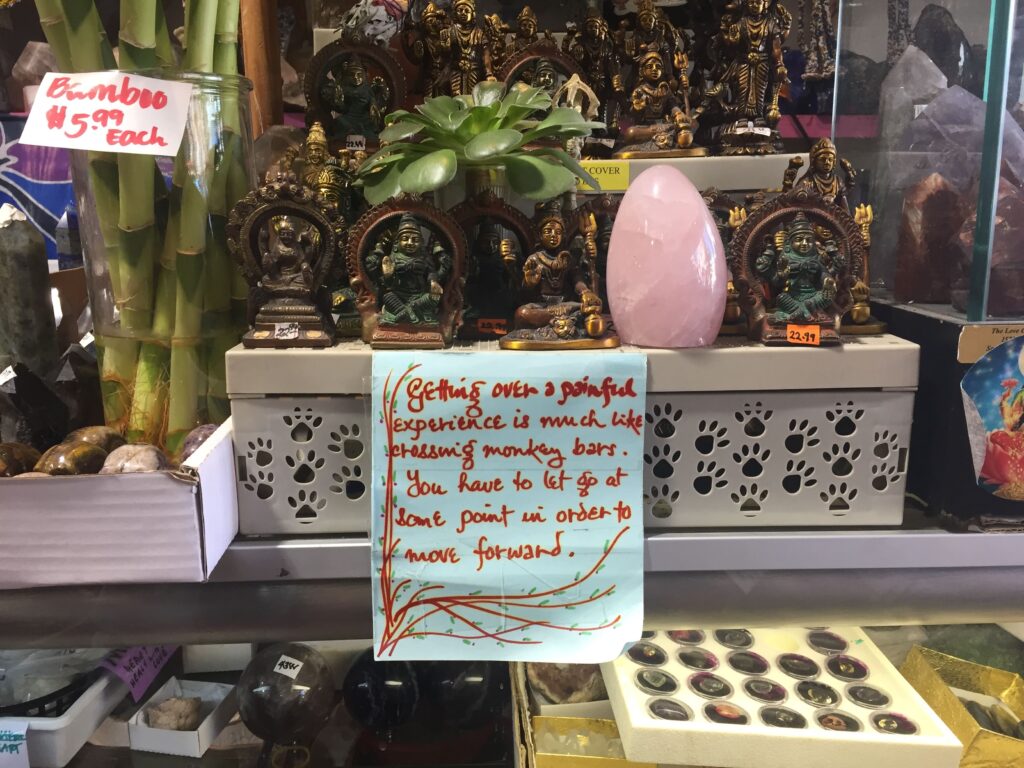 Bamboo
$5.99
Each
22.99
COVER
22.99
22.99
Getting over a painful
experience is much like
crossing monkey bars.
You have to let go at
some point in order to
move forward.